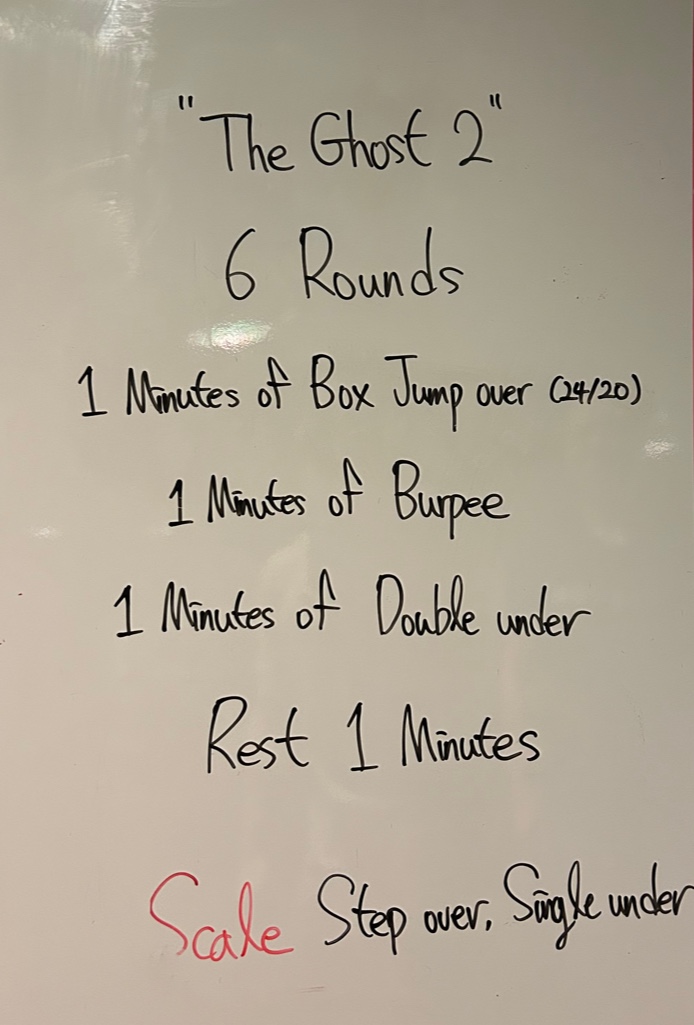 "The Ghost 2"
6 Rounds
1 Minutes of Box Jump over (24/20)
1 Minutes of Burpee
1 Minutes of Double under
Rest 1 Minutes
Scale Step over, Single under